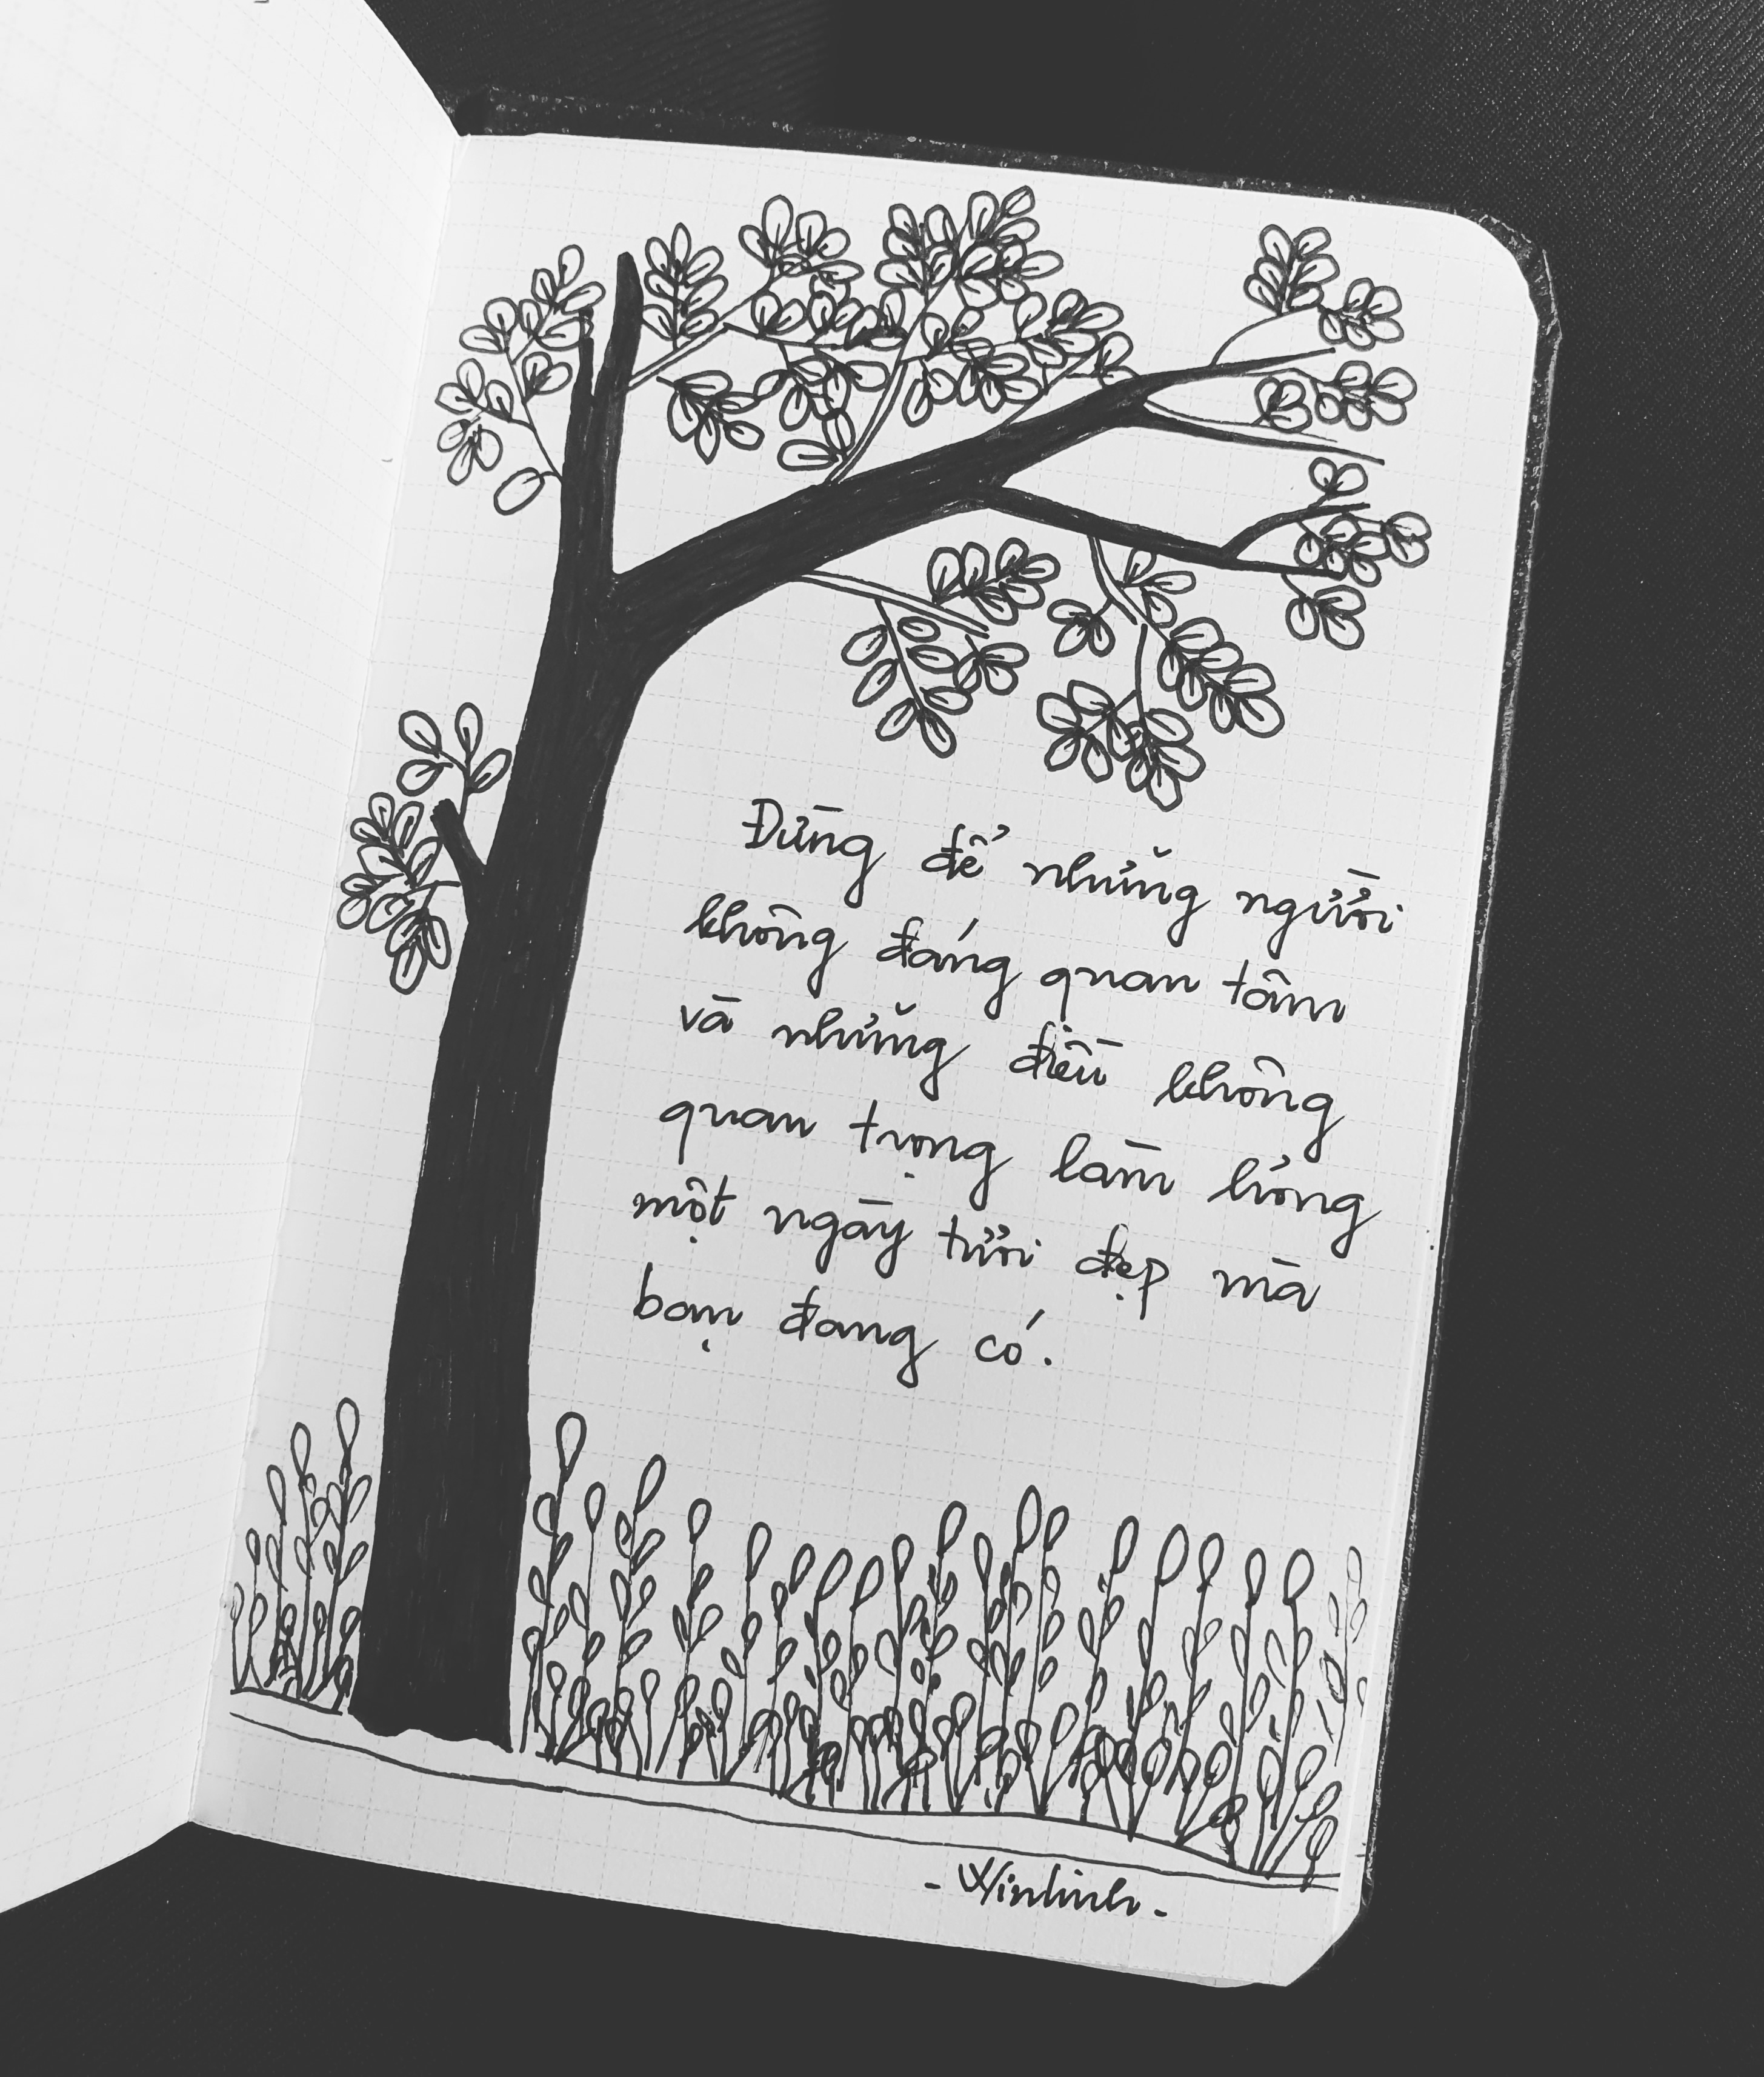 Đừng để những người
không đáng quan tâm
và những điều không
quan trọng làm hỏng
một ngày tươi đẹp mà
bạn đang có.